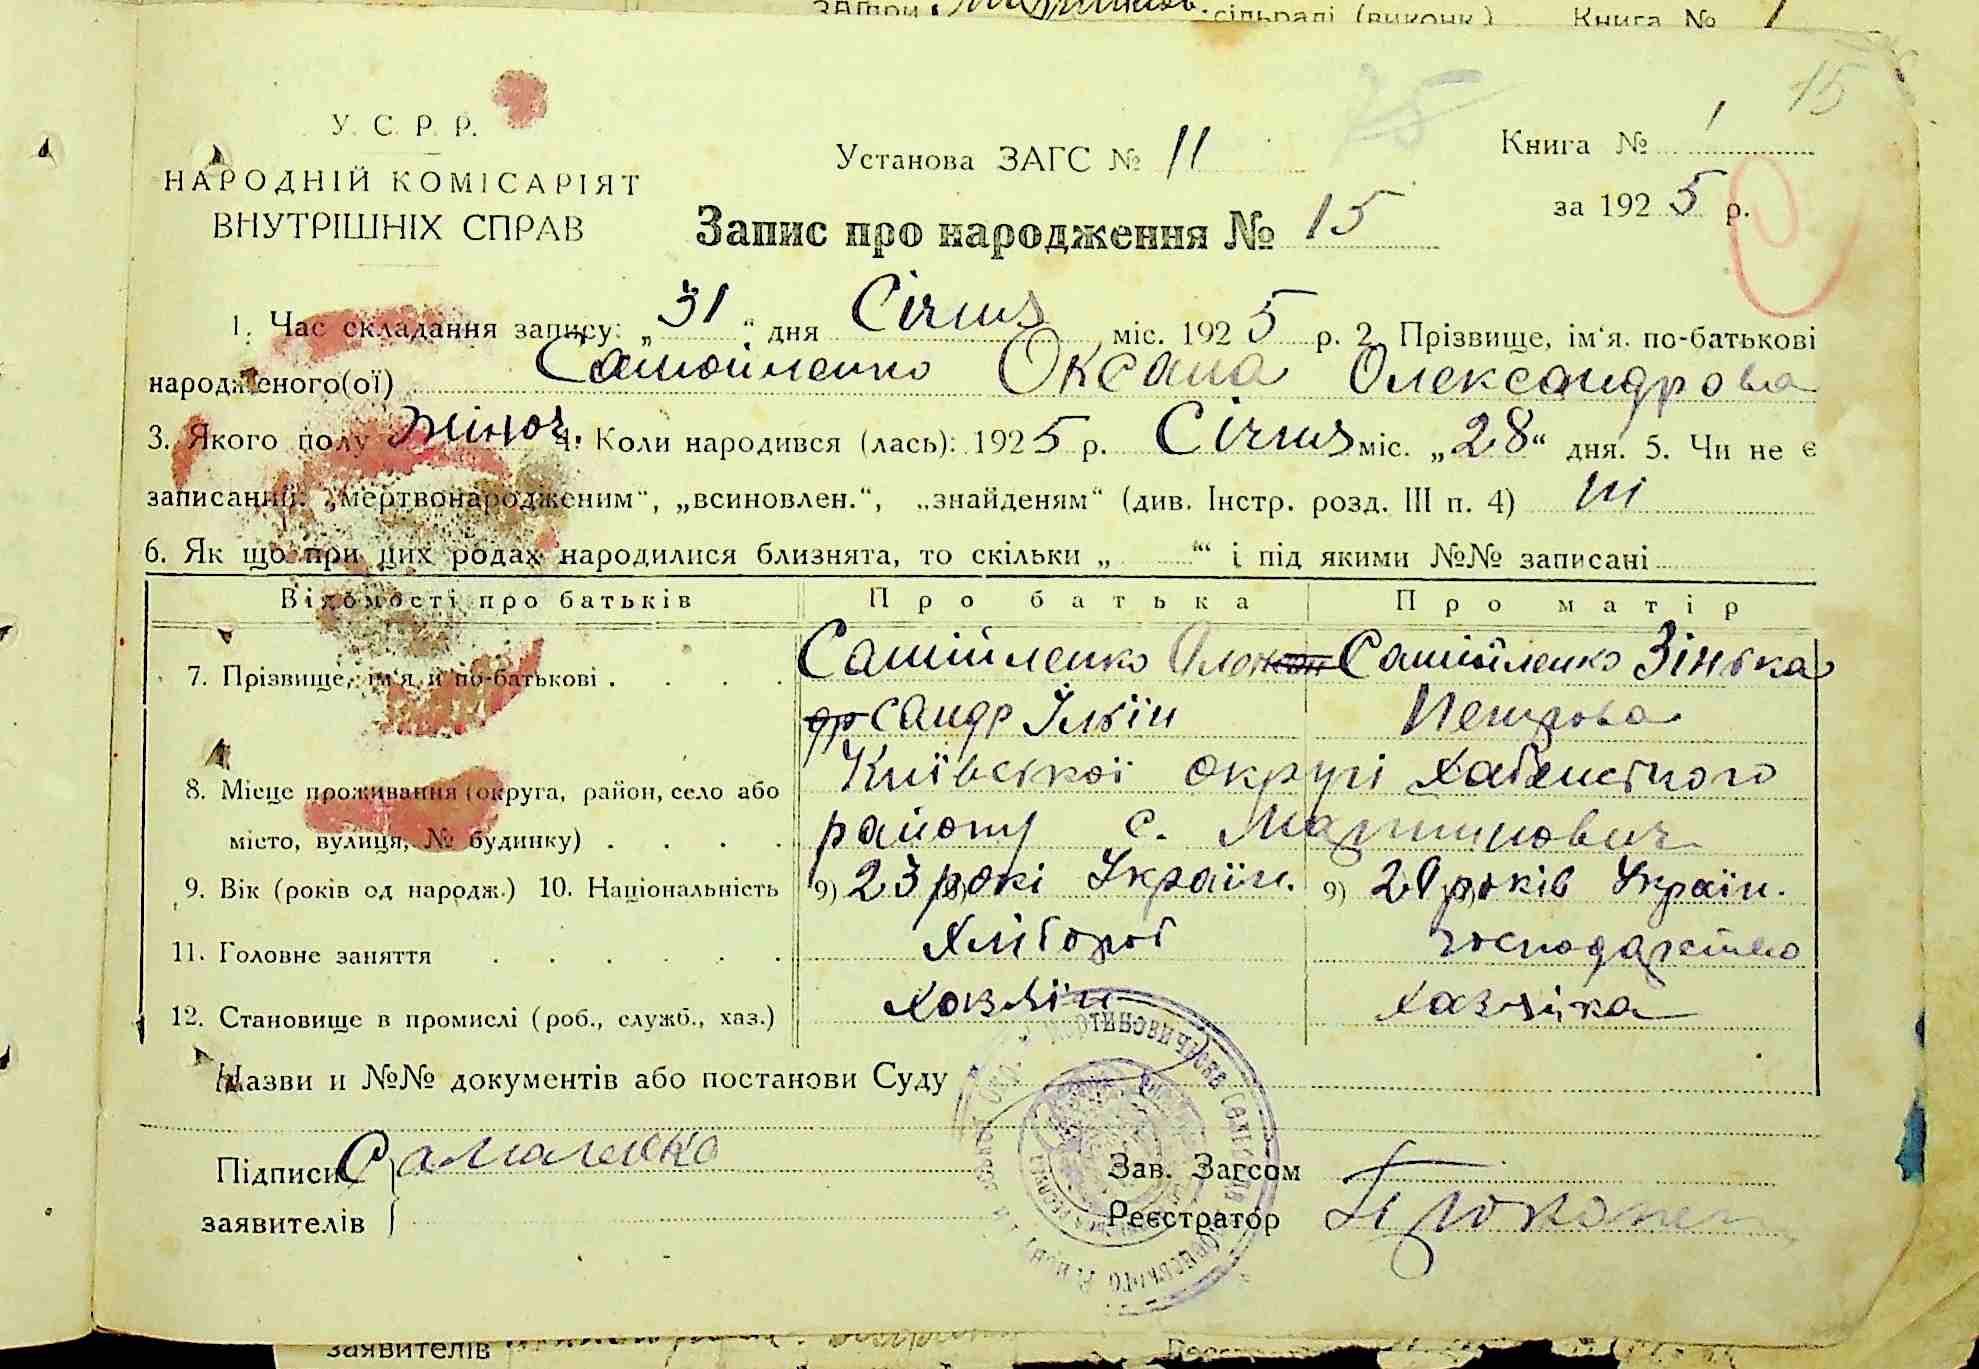 сільраді (виконк.) Книга №
15
У. С. Р. Р.
НАРОДНІЙ КОМІСАРІЯТ
ВНУТРІШНІХ СПРАВ
Установа ЗАГС № 11
Книга № 1
за 1925 р.
Запис про народження № 15
1. Час складання запису: „31“ дня Січня міс. 1925 р. 2. Прізвище, ім‘я. по-батькові
народженого(ої) Самойленко Оксана Олександрова
3. Якого полу жіноч. 4. Коли народився (лась): 1925 р. Січня міс. „28“ дня. 5. Чи не є
записаний: „мертвонародженим“, „всиновлен.“, „знайденям“ (див. Інстр. розд. III п. 4) ні
6. Як що при цих родах народилися близнята, то скільки „ “ і під якими №№ записані
Відомості про батьків Про батька Про матір
7. Прізвище, ім‘я, й по-батькові . . . . Самійленко Самійленко Зінька
сандр Ільїн Петрова
8. Місце проживання (округа, район, село або Київської округі Хабенського
місто, вулиця, № будинку) . . . . району с. Мартинович
9. Вік (років од народж.) 10. Національність 9) 23 рокі Україн. 9) років Україн.
11. Головне заняття . . . . . . Хлібороб господарство
12. Становище в промислі (роб., служб., хаз.) Хозяїн хазяйка
Назви и №№ документів або постанови Суду
Підписи
заявителів
Зав. Загсом
Реєстратор
заявителів